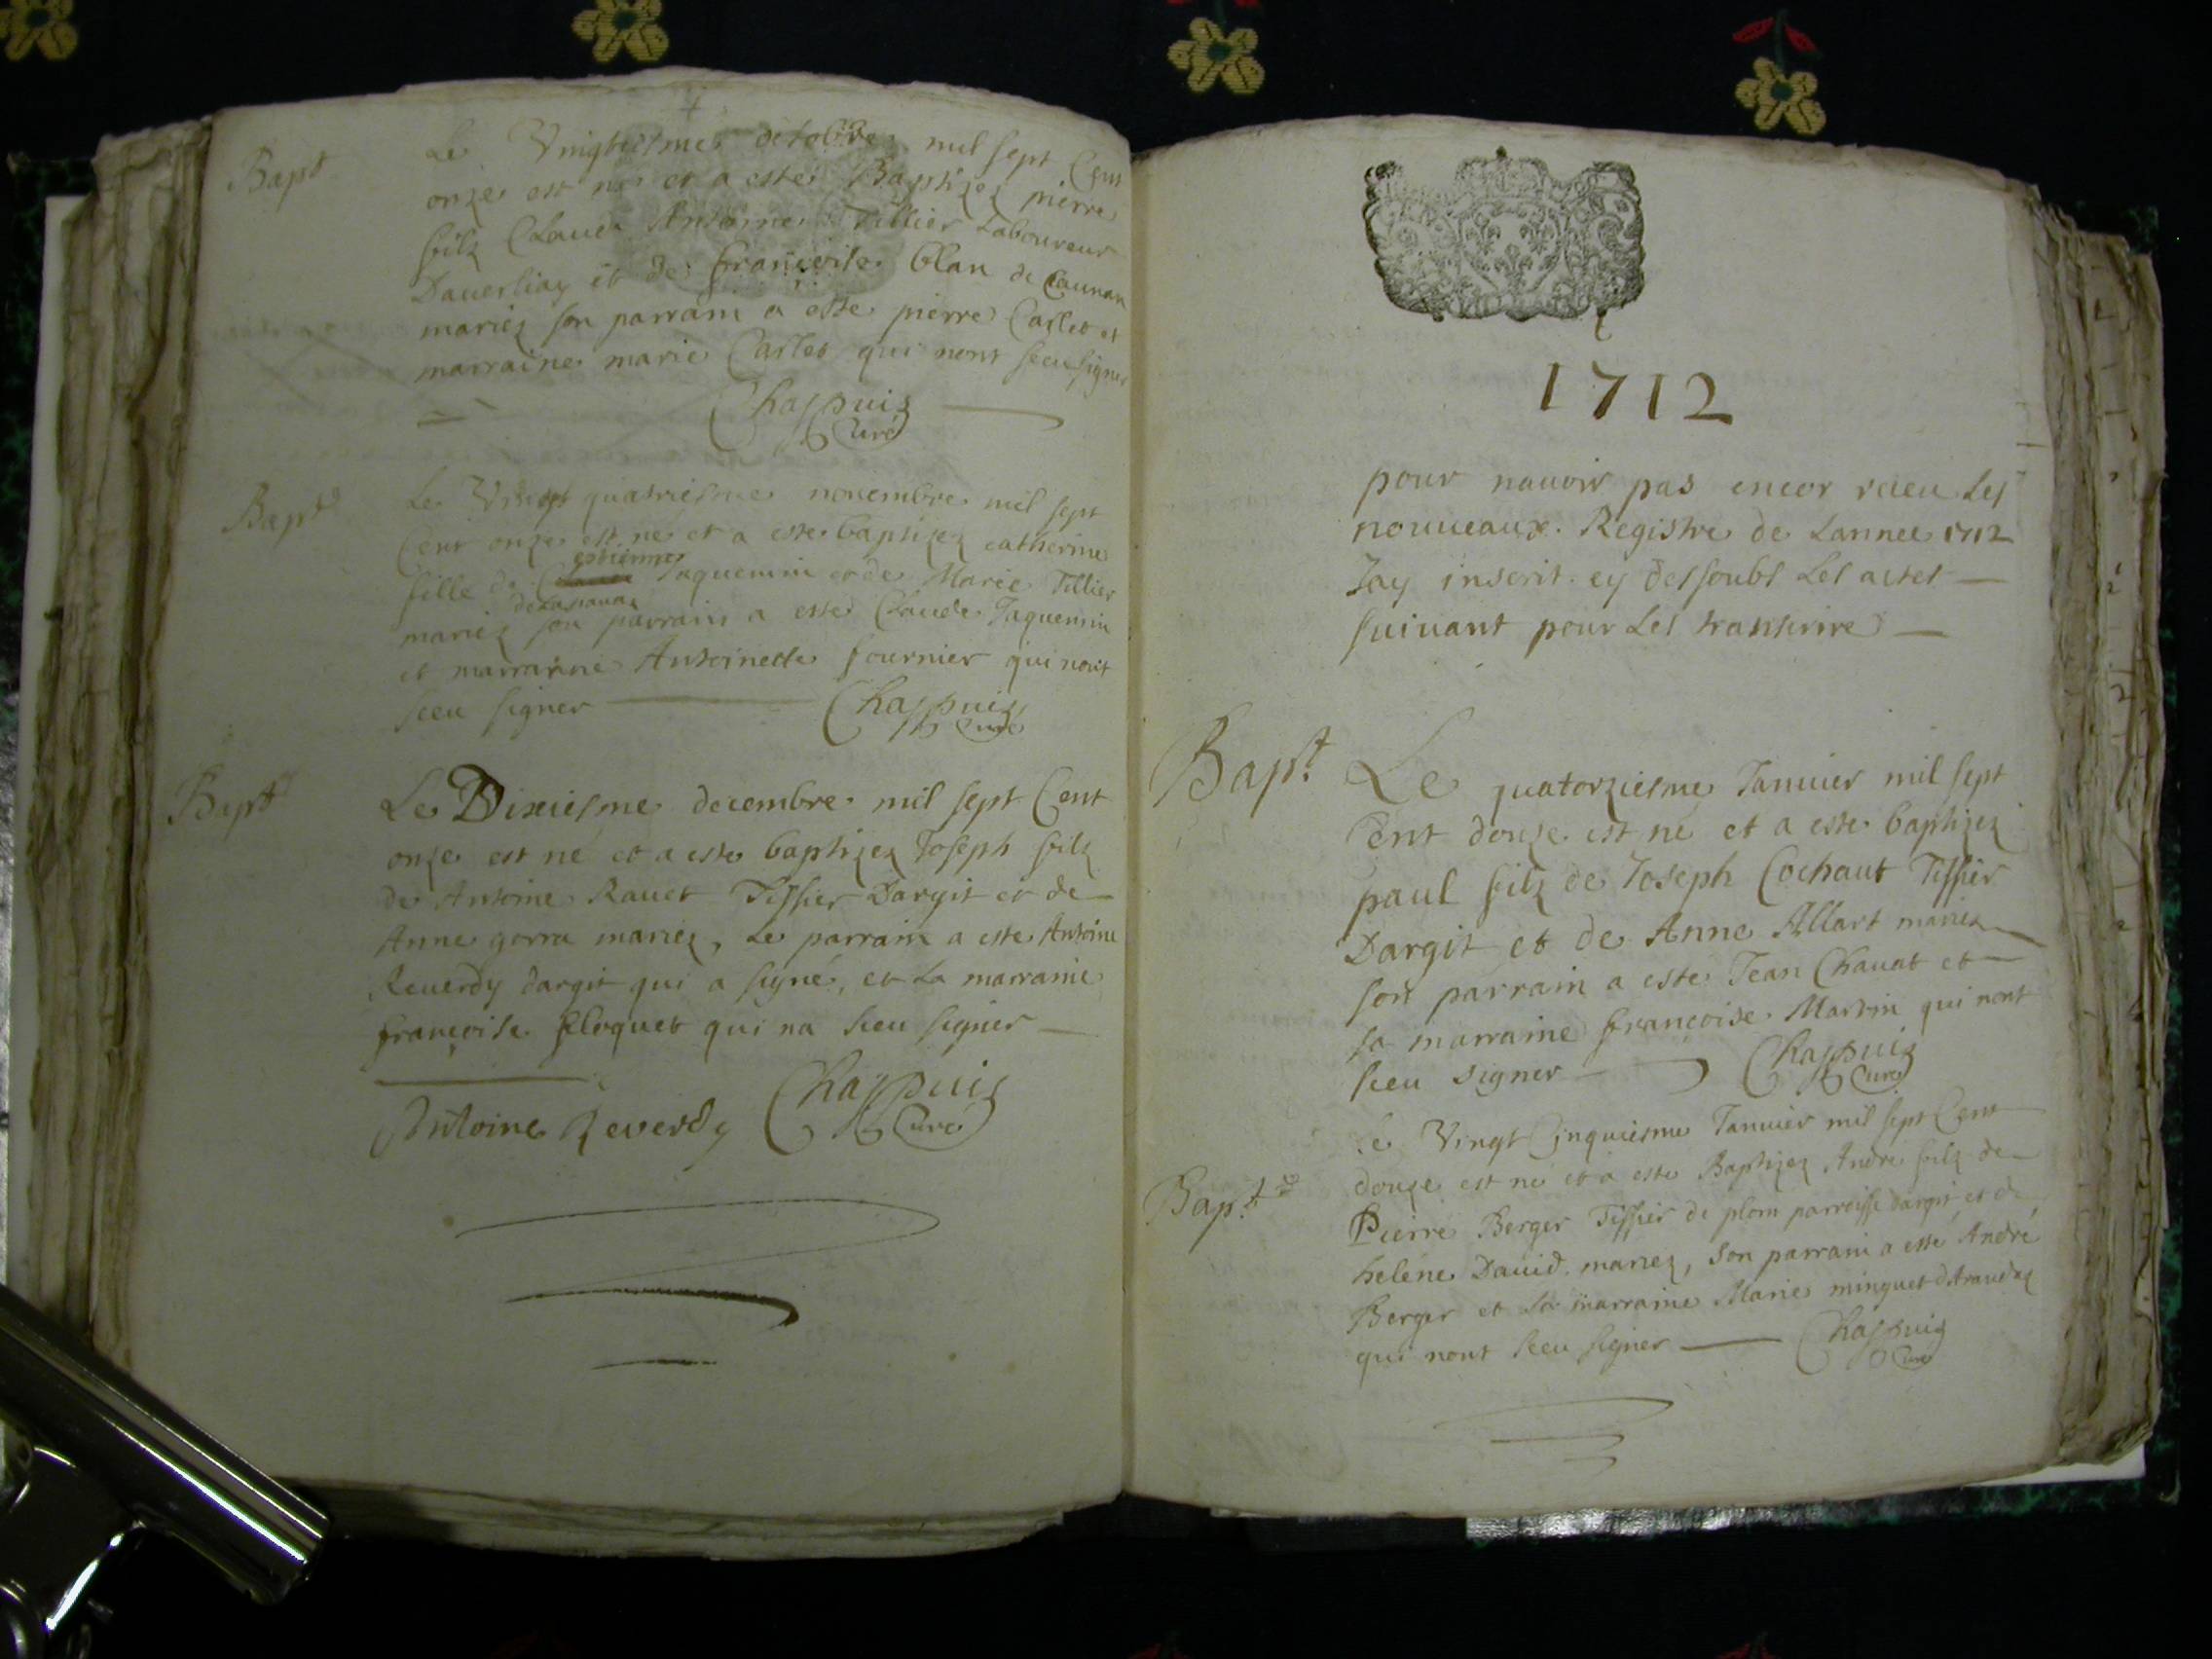 Bapt
Le Vingtiesme octobre mil sept Cent
onze est né et a esté Baptizez pierre
filz Claude Antoine Tillier Laboureur
et de françoise blan de
mariez son parrain a esté pierre Carlet et
marraine marie Carlet qui nont sceu signer
Chappuiz
Curé
Bapt
Le Vingt quatriesme nouembre mil sept
Cent onze est né et a esté baptizez catherine
estienne
fille de Jaquemin et de Marie Tillier
mariez son parrain a esté Claude Jaquemin
et marraine Antoinette fournier qui nont
sceu signer
Chappuiz
Curé
Bapt
Le Dixiesme decembre mil sept Cent
onze est né et a esté baptizez Joseph filz
de Antoine Rauet Tissier Dargit et de
Anne gorra mariez, Le parrain a esté Antoine
Reuerdy dargit qui a signé, et La marraine
françoise floquet qui na sceu signer
Antoine Reverdy Chappuiz
Curé
1712
pour nauoir pas encor receu Les
nouueaux Registre de Lannee 1712
Jay inscrit cy dessoubs Les actes
suiuant pour Les transcrire
Bapt
Le quatorziesme Januier mil sept
Cent douze est né et a esté baptizez
paul filz de Joseph Cochaut Tissier
Dargit et de Anne Allart mariez
son parrain a esté Jean Chauat et
sa marraine françoise Martin qui nont
sceu signer Chappuiz
Curé
Bapt
Le Vingt Cinquiesme Januier mil sept Cent
douze est né et a esté Baptizez André filz de
Pierre Berger Tissier de plom parroisse dargit et de
helene Dauid mariez, son parrain a esté André
Berger et sa marraine Marie minguet
qui nont sceu signer Chappuiz
Curé